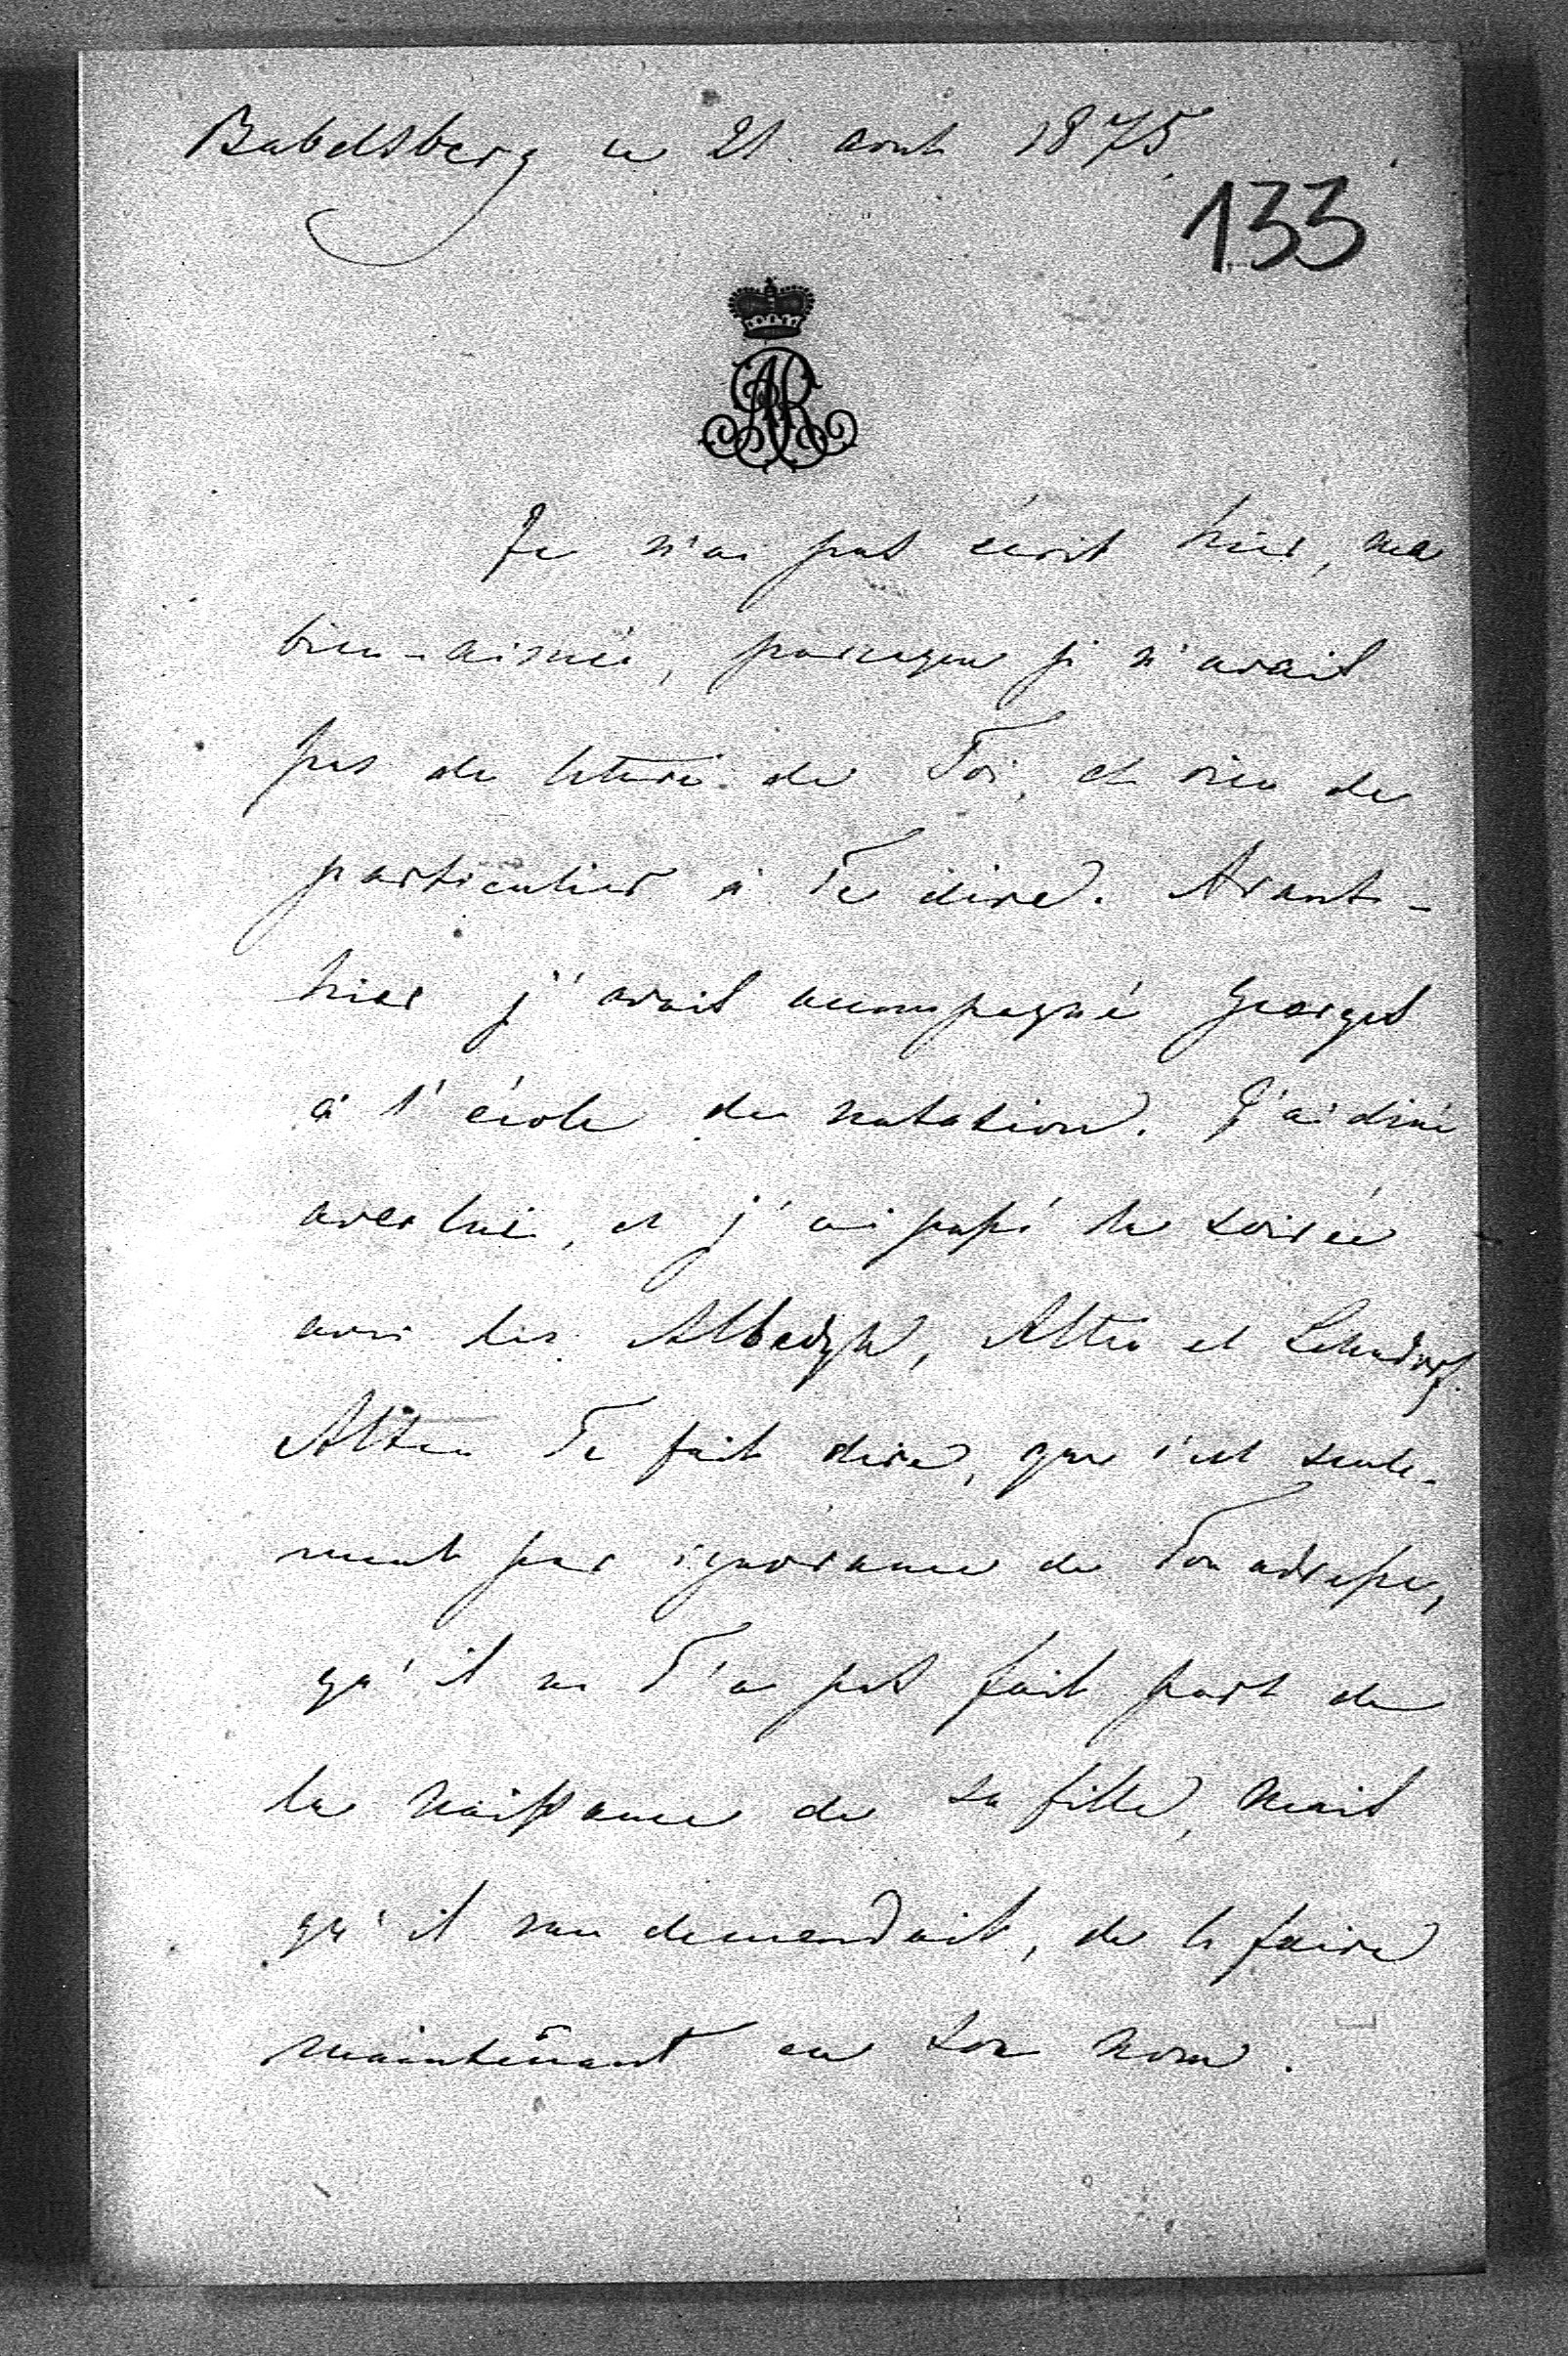 Babelsberg ce 21 aout 1875.
133
AR
Je n'ai pas écrit hier, ma
bien-aimée, parceque je n'avais
pas de lettre de Toi, et rien de
particulier à Te dire. Avant-
hier j'avais accompagné Georges
à l'école de natation. J'ai diné
avec lui, et j'ai passé la soirée
avec les Albedyll, Alten et Lehndorf.
Alten Te fait dire, que c'est seule-
ment par ignorance de Ton adresse,
qu'il ne T'a pas fait part de
la naissance de sa fille, mais
qu'il me demandait, de le faire
maintenant en son nom.